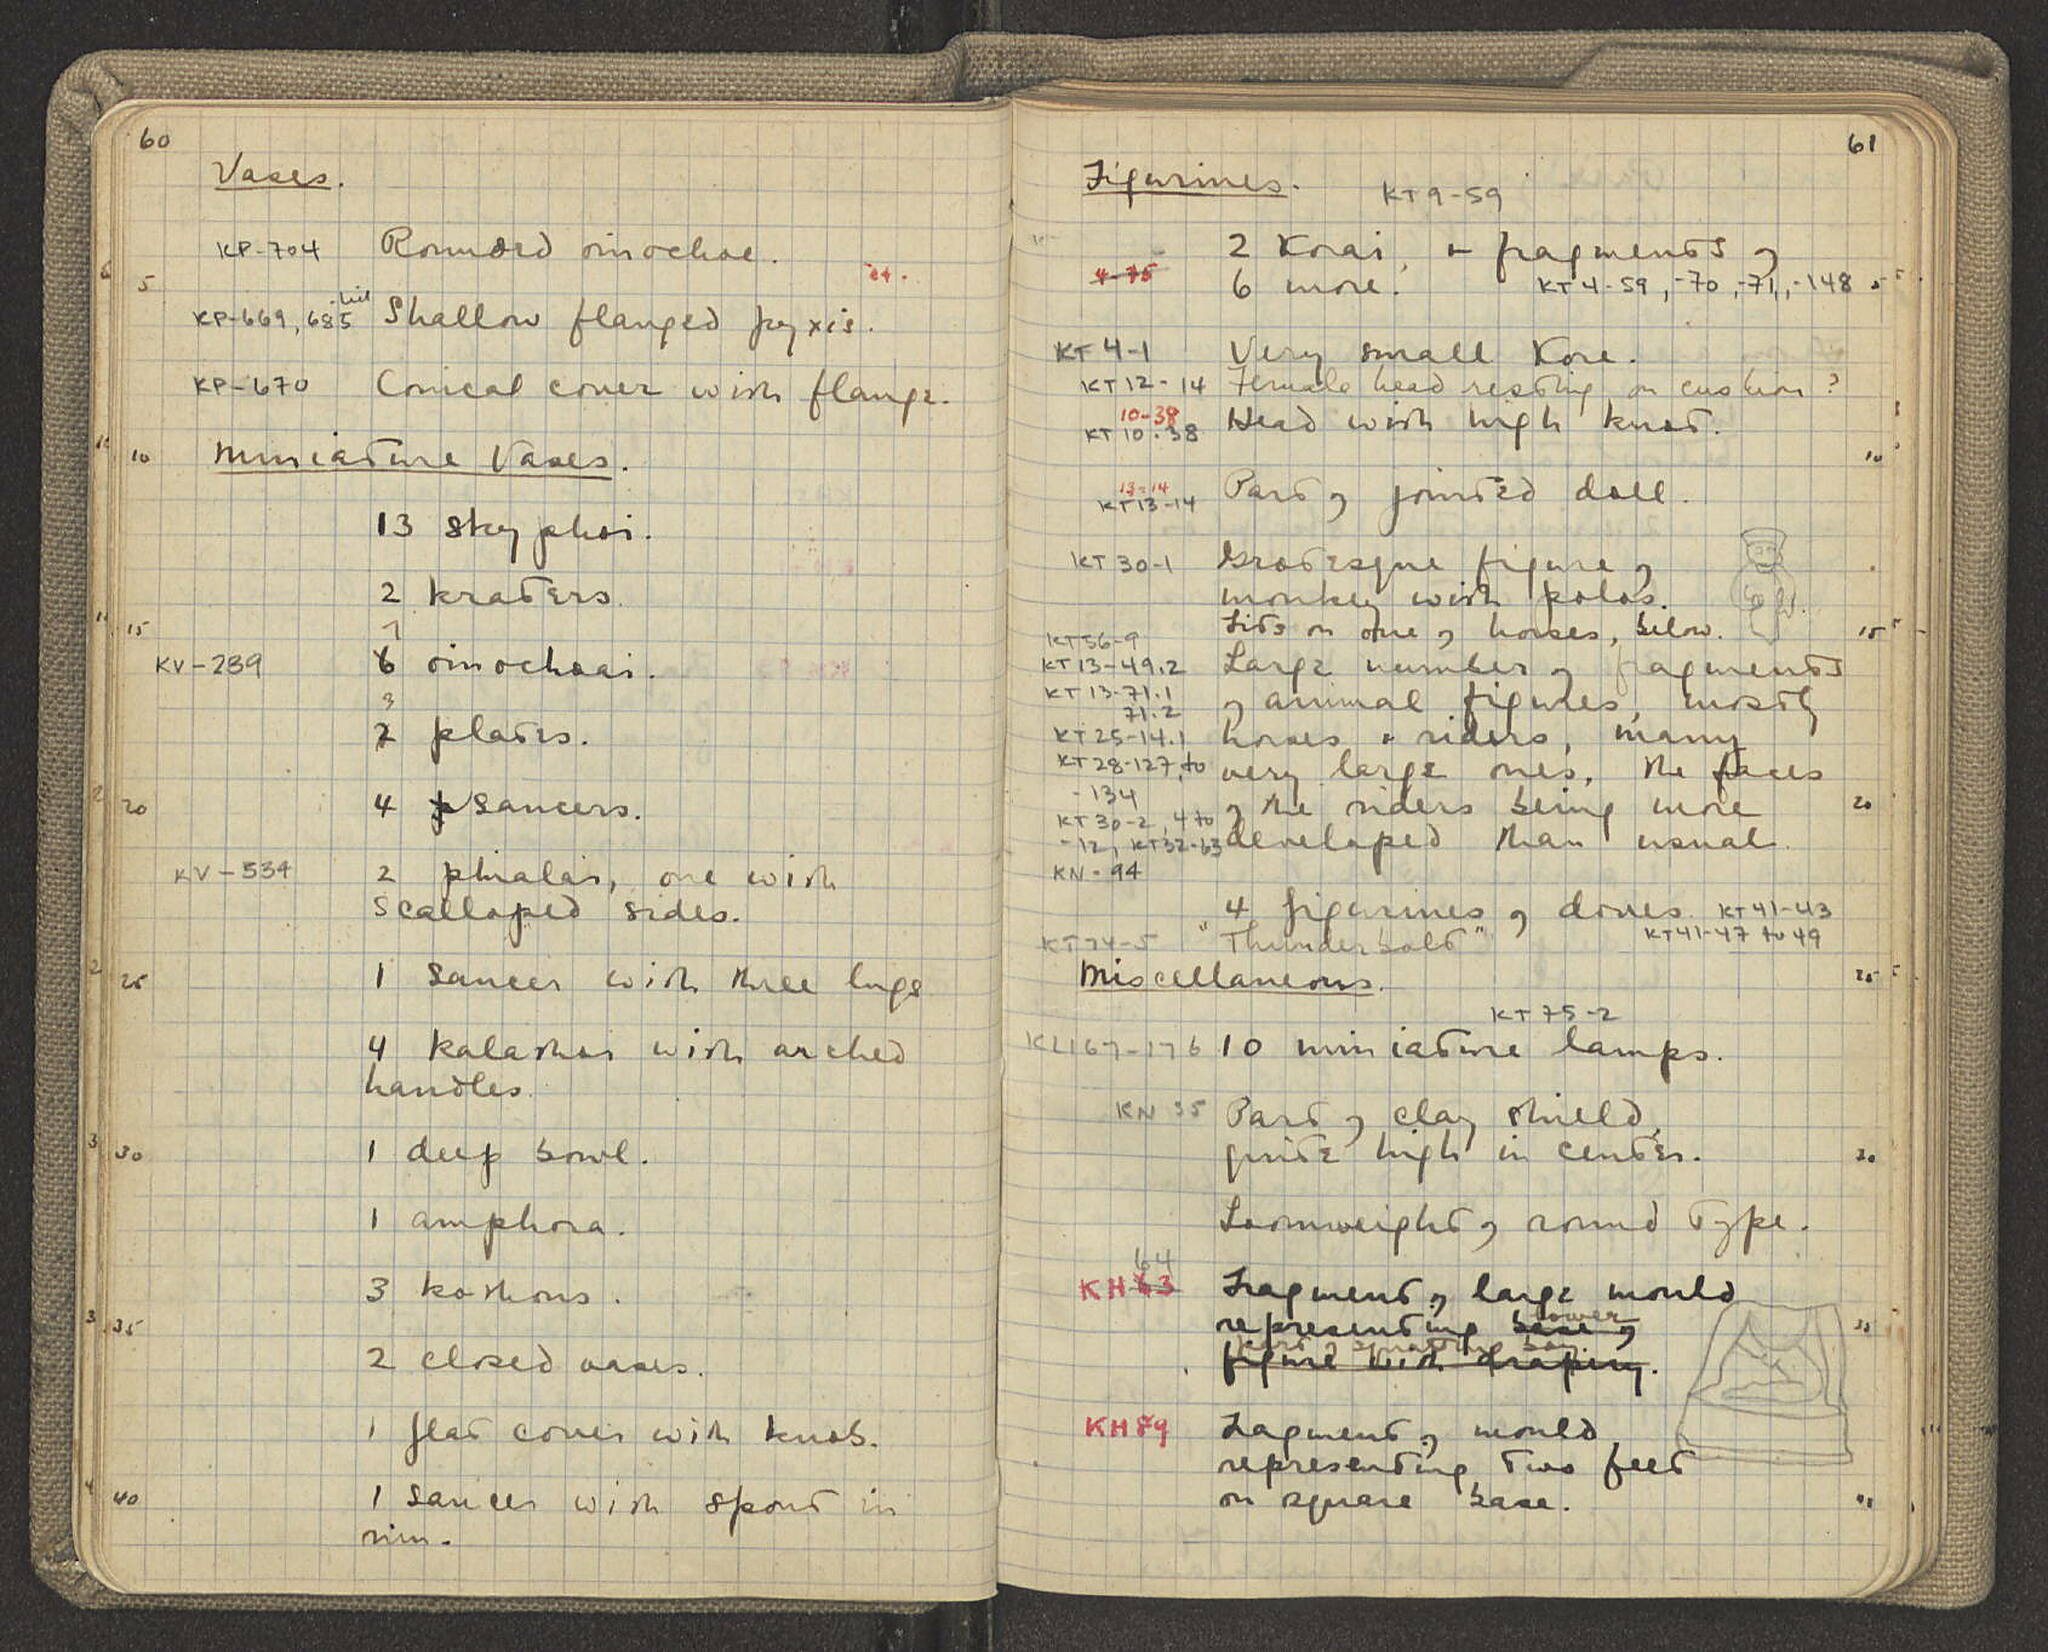 60
Vases.
KP-704 Rounded oinochoe.
5
KP-669, 685 Shallow flanged pyxis.
KP-670 Conical cover with flange.
10 Miniature Vases.
13 skyphoi.
2 kraters.
15
7
KV-239 6 oinochoai.
3
2 plates.
20 4 saucers.
KV-534 2 phialai, one with
scalloped sides.
25 1 saucer with three lugs
4 kalathoi with arched
handles.
30 1 deep bowl.
1 amphora.
3 kothons.
35
2 closed vases.
1 flat cover with knob.
40 1 saucer with spout in
rim.
61
Figurines.
KT 9-59
2 Korai, + fragments of
4-75 6 more. KT 4-59, -70, -71, -148 5
KT 4-1 Very small Kore.
KT 12-14 Female head resting on cushion?
10-38
KT 10-38 Head with high knot.
10
13-14
KT 13-14 Part of jointed doll.
KT 30-1 Grotesque figure of
monkey with polos.
KT 56-9 Fits on one of horses, below. 15
KT 13-49.2 Large number of fragments
KT 13-71.1 of animal figures, mostly
71.2
KT 25-14.1 horses + riders, many
KT 28-127, to very large ones, the faces
-134 of the riders being more 20
KT 30-2, 4 to
-12, KT 32-63 developed than usual.
KN-94
4 figurines of doves. KT 41-43
KT 41-47 to 49
KT 74-5 "Thunderbolt"
Miscellaneous. 25
KT 75-2
KL 167-176 10 miniature lamps.
KN 35 Part of clay shield,
quite high in center. 30
Loomweight of round type.
64
KH 63 Fragment of large mould
representing base of lower 35
part of squatting boy.
figure with drapery.
KH 79 Fagment of mould
representing two feet
on square base. 40